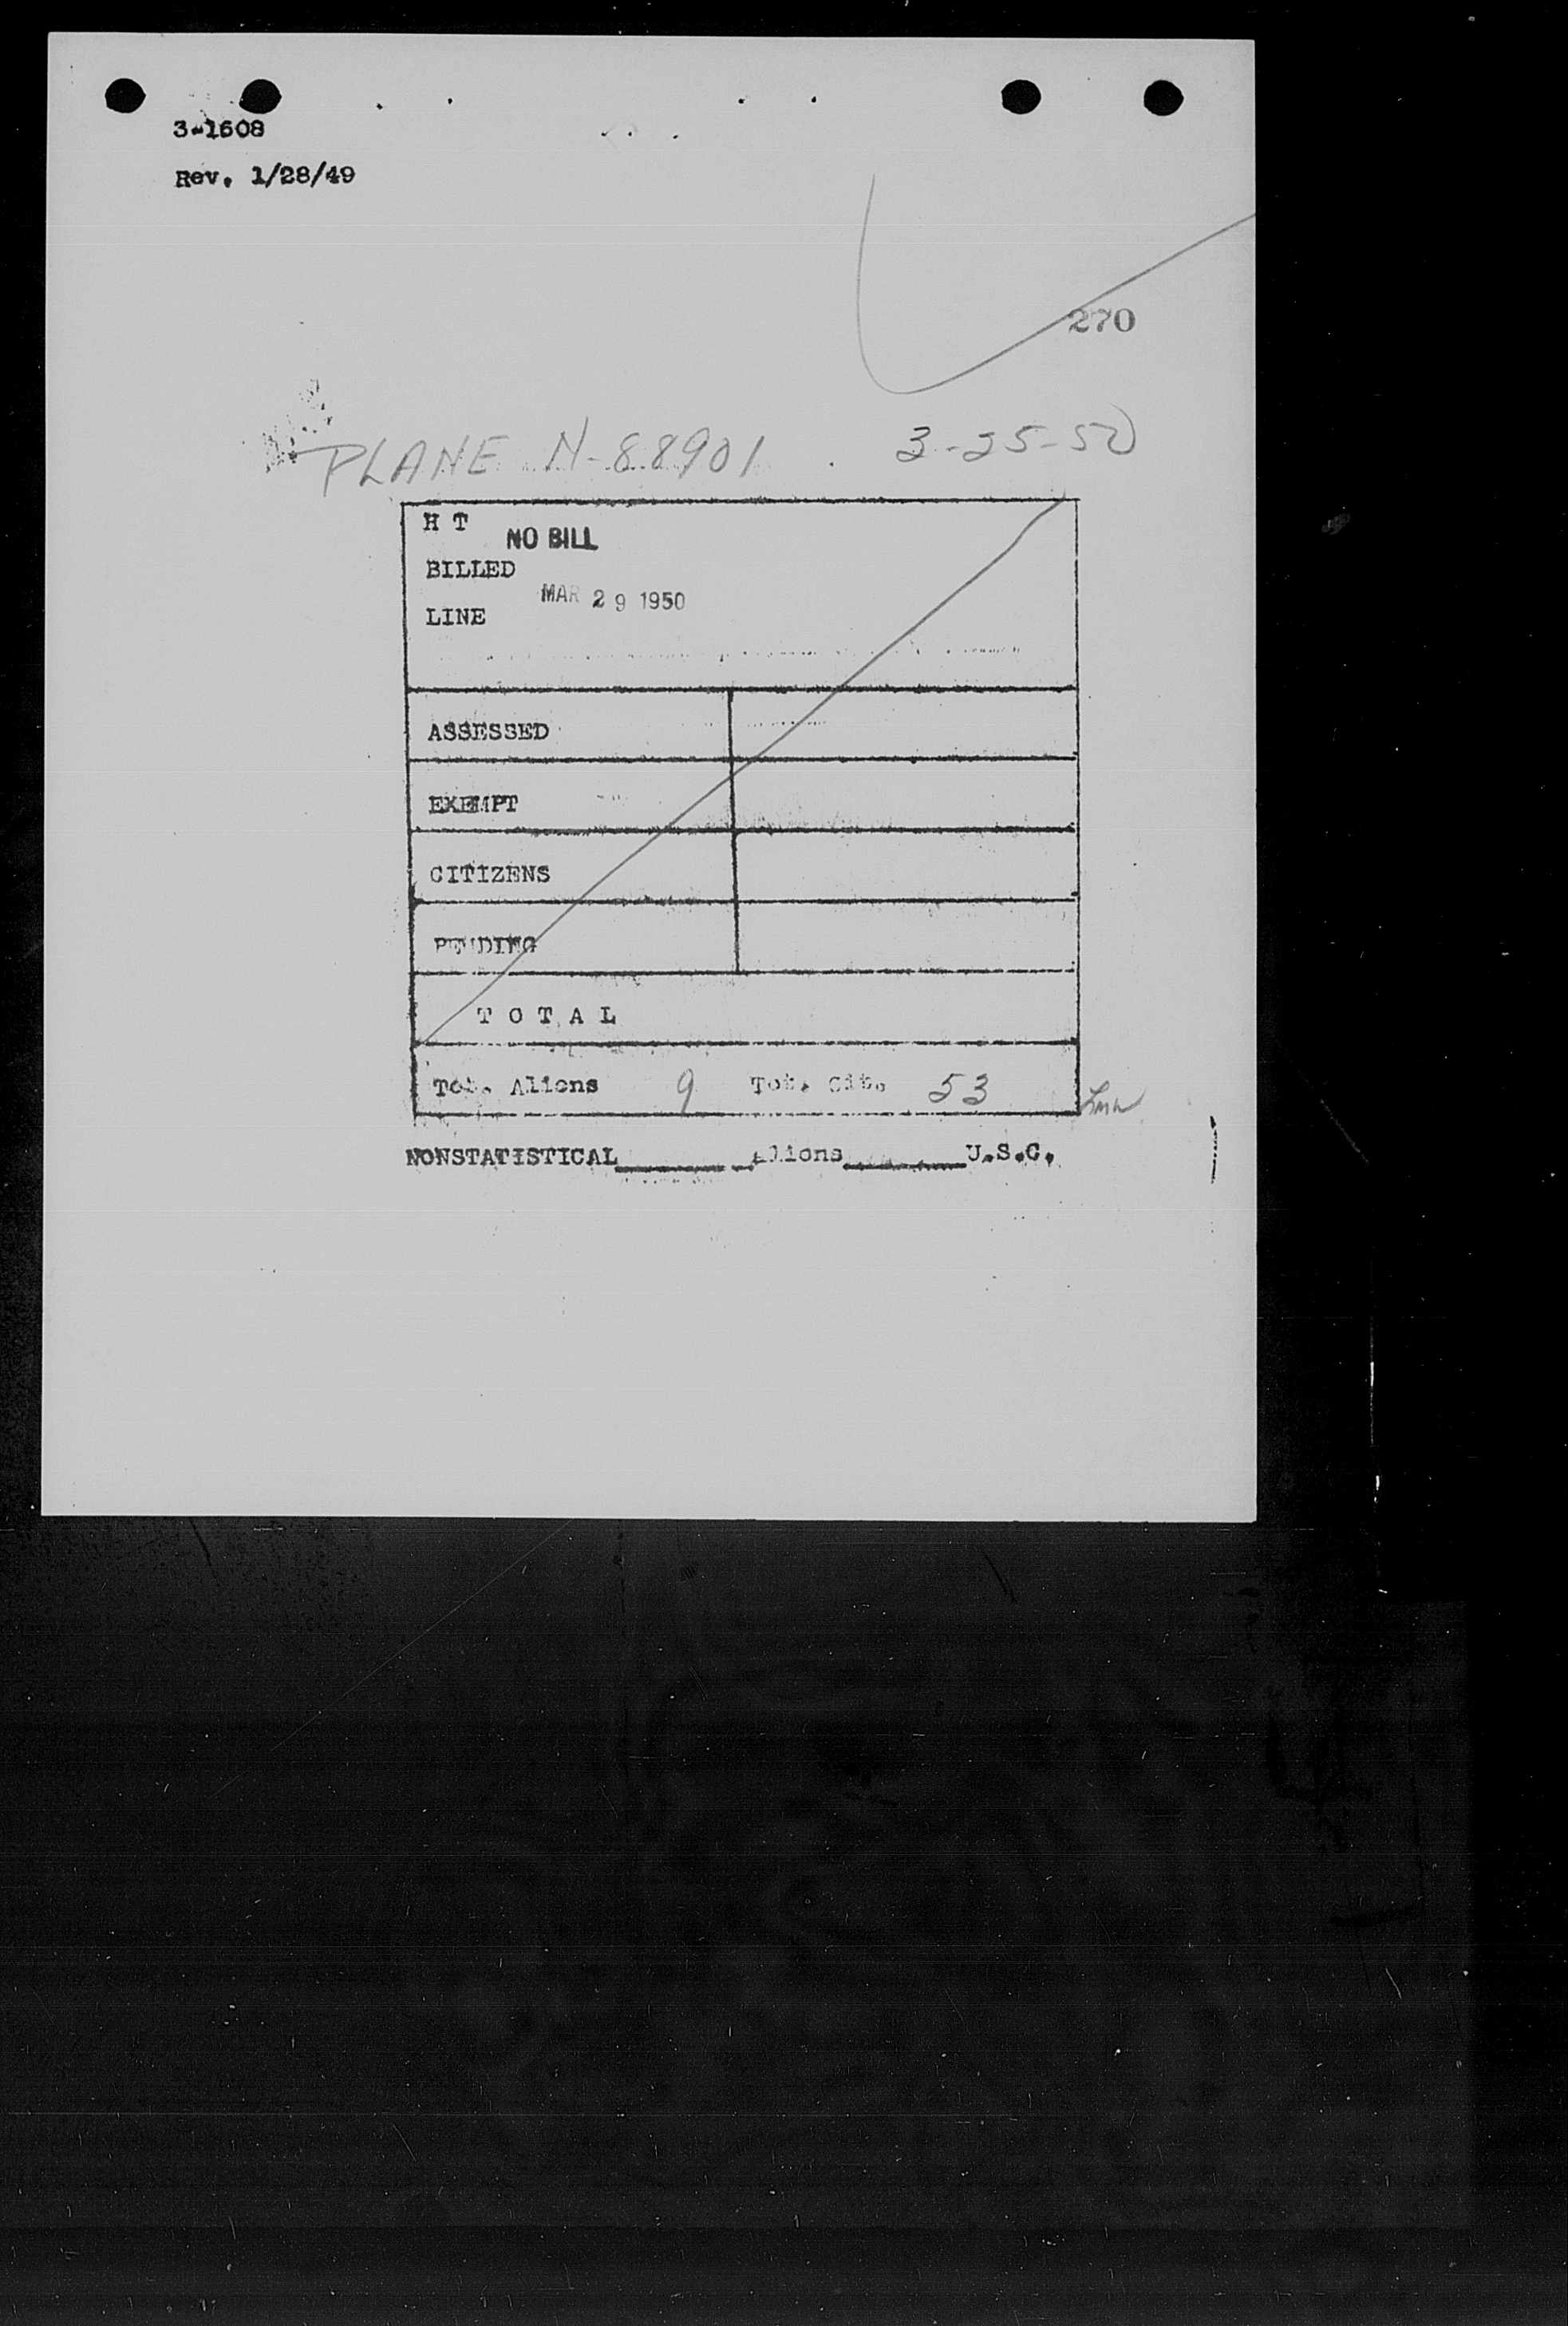 3-1608
Rev. 1/28/49
270
PLANE N-88901 3-25-50
H T
NO BILL
BILLED
MAR 29 1950
LINE
ASSESSED
EXEMPT
CITIZENS
PENDING
T O T A L
Tot. Aliens 9 Tot. Cit. 53
NONSTATISTICAL Aliens U.S.C.